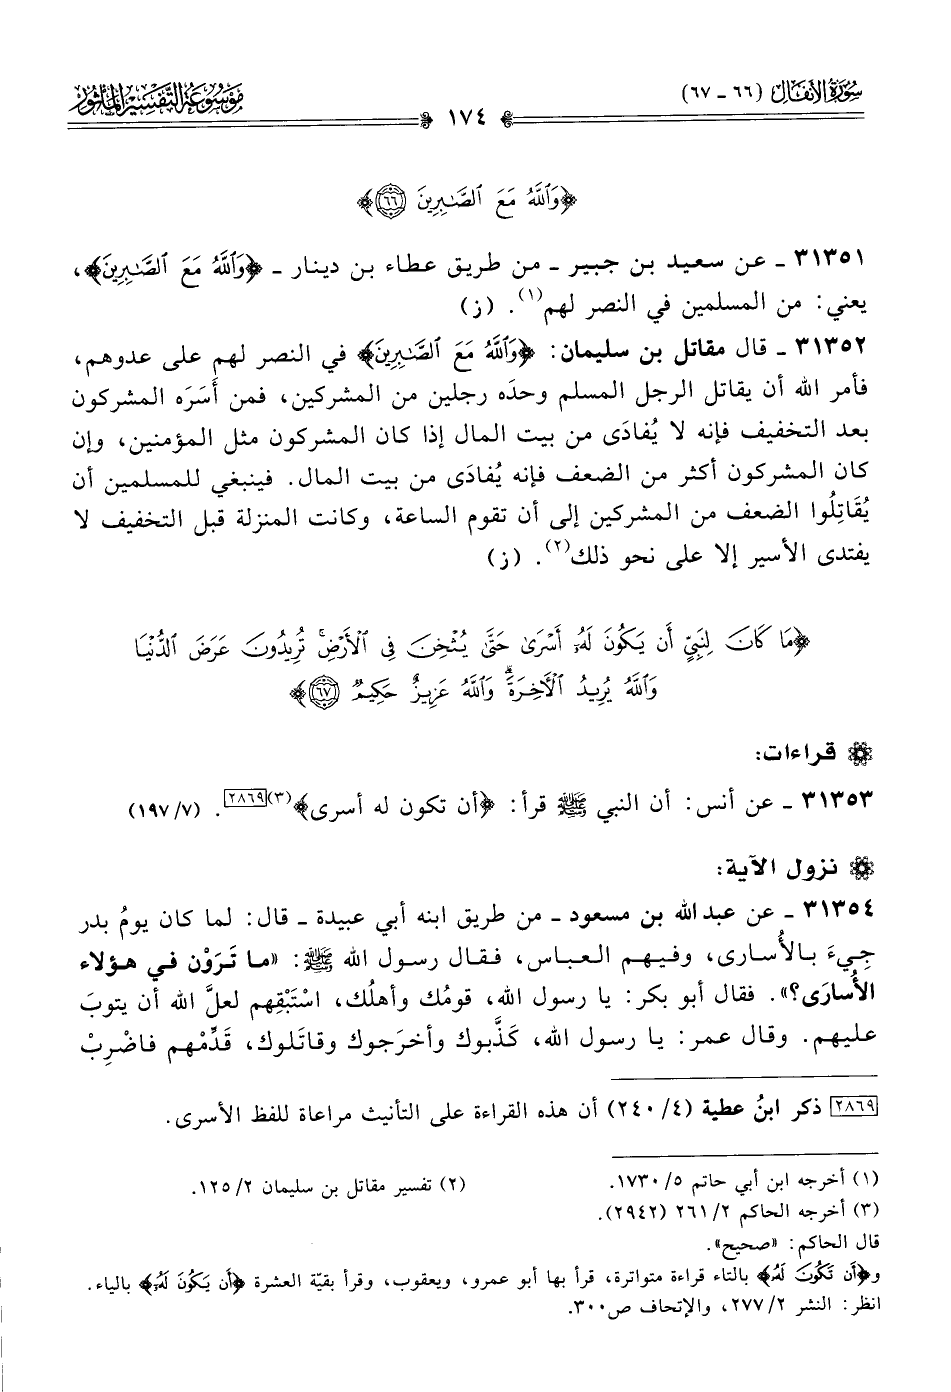 سُورَةُ الأَنفَال (٦٦ - ٦٧)
مَوْسُوعَة التَّفْسِير المَأثُور
١٧٤
﴿وَٱللَّهُ مَعَ ٱلصَّـٰبِرِينَ ٦٦﴾
٣١٣٥١ - عن سعيد بن جبير - من طريق عطاء بن دينار - ﴿وَٱللَّهُ مَعَ ٱلصَّـٰبِرِينَ﴾،
يعني: من المسلمين في النصر لهم(١). (ز)
٣١٣٥٢ - قال مقاتل بن سليمان: ﴿وَٱللَّهُ مَعَ ٱلصَّـٰبِرِينَ﴾ في النصر لهم على عدوهم،
فأمر الله أن يقاتل الرجل المسلم وحدَه رجلين من المشركين، فمن أَسَرَه المشركون
بعد التخفيف فإنه لا يُفادَى من بيت المال إذا كان المشركون مثل المؤمنين، وإن
كان المشركون أكثر من الضعف فإنه يُفادَى من بيت المال. فينبغي للمسلمين أن
يُقَاتِلُوا الضعف من المشركين إلى أن تقوم الساعة، وكانت المنزلة قبل التخفيف لا
يفتدى الأسير إلا على نحو ذلك(٢). (ز)
﴿مَا كَانَ لِنَبِيٍّ أَن يَكُونَ لَهُۥٓ أَسْرَىٰ حَتَّىٰ يُثْخِنَ فِى ٱلْأَرْضِۚ تُرِيدُونَ عَرَضَ ٱلدُّنْيَا
وَٱللَّهُ يُرِيدُ ٱلْـَٔاخِرَةَۗ وَٱللَّهُ عَزِيزٌ حَكِيمٌ ٦٧﴾
قراءات:
٣١٣٥٣ - عن أنس: أن النبي ﷺ قرأ: ﴿أن تكون له أسرى﴾(٣)[٢٨٦٩]. (١٩٧/٧)
نزول الآية:
٣١٣٥٤ - عن عبد الله بن مسعود - من طريق ابنه أبي عبيدة - قال: لما كان يومُ بدر
جِيءَ بالأُسارى، وفيهم العباس، فقال رسول الله ﷺ: «ما تَرَوْن في هؤلاء
الأُسارَى؟». فقال أبو بكر: يا رسول الله، قومُك وأهلُك، اسْتَبْقِهم لعلَّ الله أن يتوبَ
عليهم. وقال عمر: يا رسول الله، كَذَّبوك وأخرَجوك وقاتَلوك، قَدِّمْهم فاضْرِبْ
[٢٨٦٩] ذكر ابنُ عطية (٢٤٠/٤) أن هذه القراءة على التأنيث مراعاة للفظ الأسرى.
(١) أخرجه ابن أبي حاتم ١٧٣٠/٥.
(٢) تفسير مقاتل بن سليمان ١٢٥/٢.
(٣) أخرجه الحاكم ٢٦١/٢ (٢٩٤٢).
قال الحاكم: «صحيح».
و﴿أَن تَكُونَ لَهُۥ﴾ بالتاء قراءة متواترة، قرأ بها أبو عمرو، ويعقوب، وقرأ بقيّة العشرة ﴿أَن يَكُونَ لَهُۥ﴾ بالياء.
انظر: النشر ٢٧٧/٢، والإتحاف ص٣٠٠.